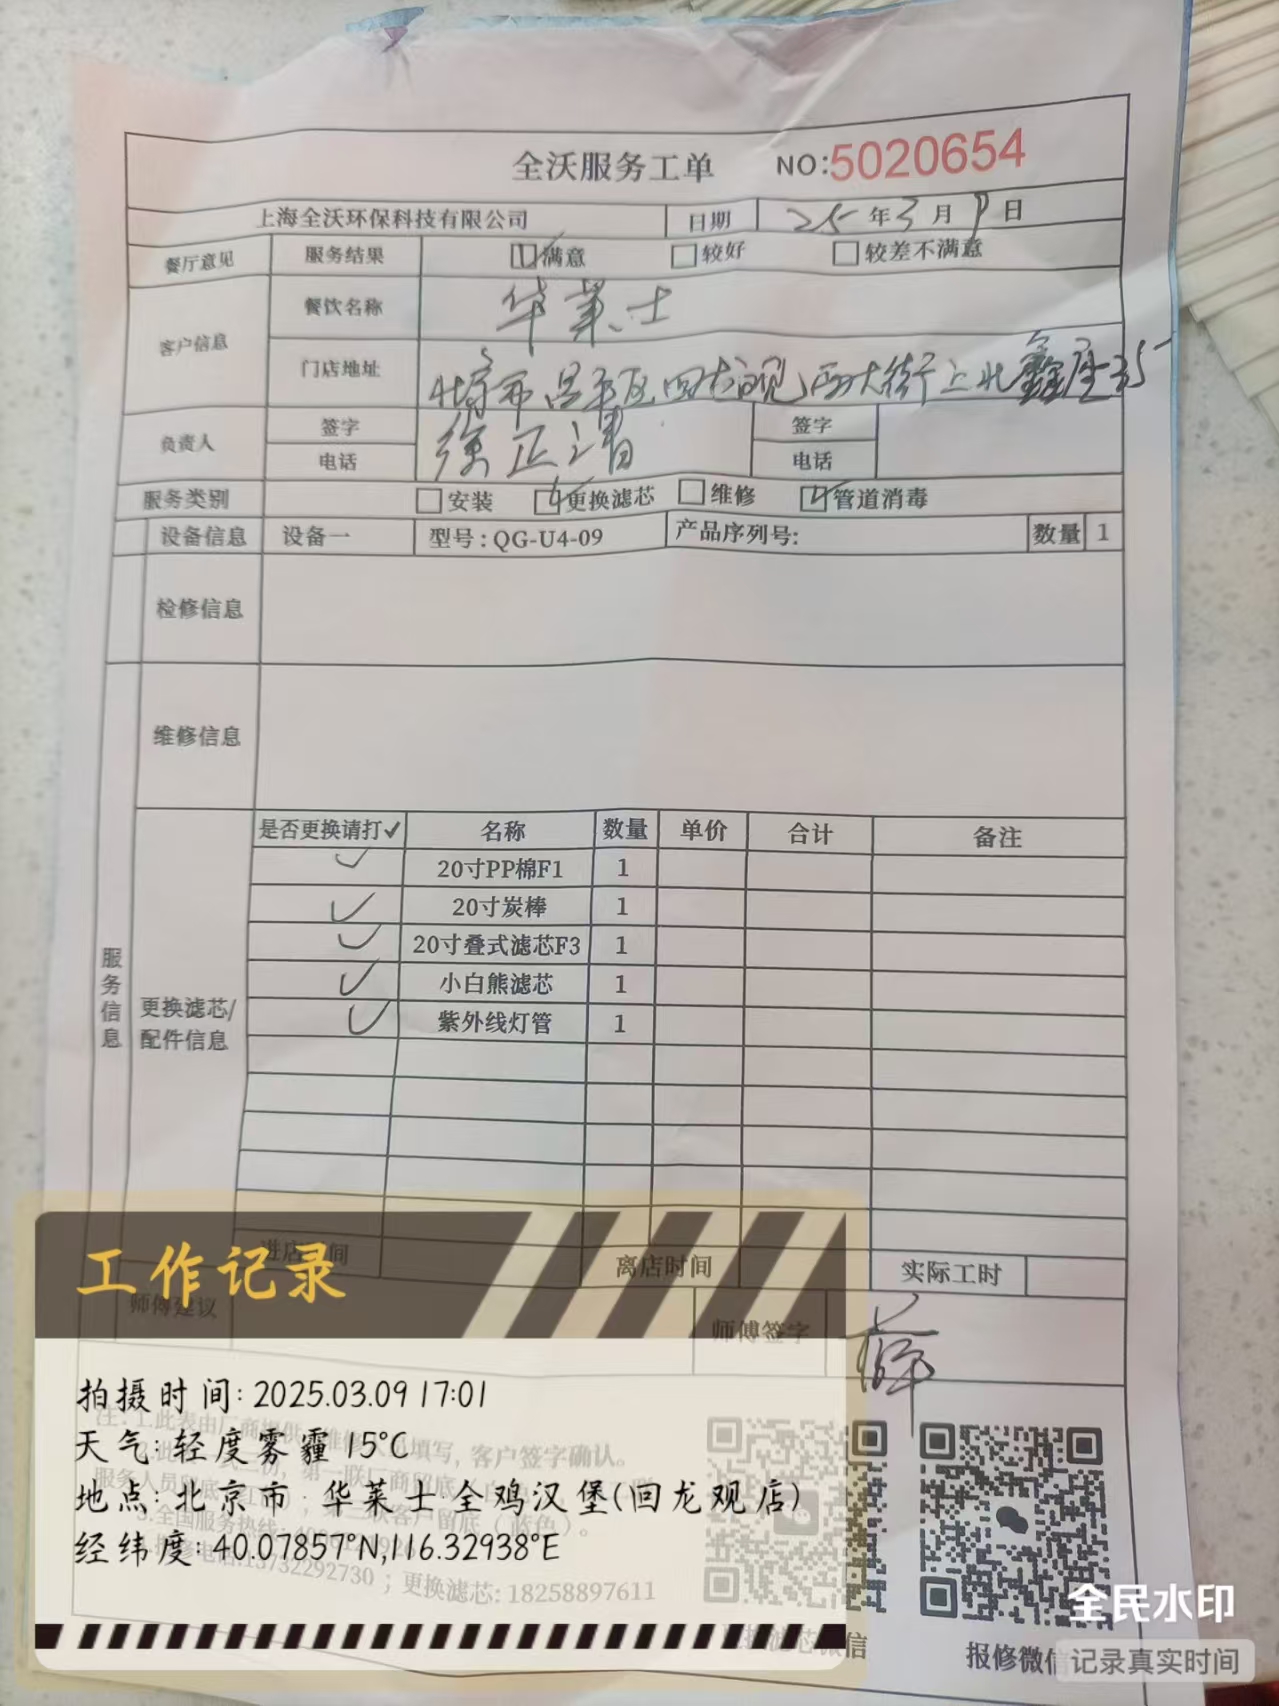 全沃服务工单 NO:5020654
上海全沃环保科技有限公司 日期 25年3月9日
餐厅意见 服务结果 满意 较好 较差不满意
客户信息 餐饮名称 华莱士
门店地址 北京市昌平区回龙观西大街上北鑫座35
负责人 签字 徐正清 签字
电话 电话
服务类别 安装 更换滤芯 维修 管道消毒
设备信息 设备一 型号:QG-U4-09 产品序列号: 数量 1
检修信息
维修信息
服务信息
更换滤芯/配件信息
是否更换请打✓ 名称 数量 单价 合计 备注
✓ 20寸PP棉F1 1
✓ 20寸炭棒 1
✓ 20寸叠式滤芯F3 1
✓ 小白熊滤芯 1
✓ 紫外线灯管 1
进店时间 离店时间 实际工时
师傅建议 师傅签字 薛
工作记录
拍摄时间: 2025.03.09 17:01
天气: 轻度雾霾 15℃
地点: 北京市·华莱士全鸡汉堡(回龙观店)
经纬度: 40.07857°N,116.32938°E
注: 1.此表由厂商提供 维修人员填写, 客户签字确认。
13732292730 ; 更换滤芯: 18258897611
报修微信
全民水印
记录真实时间